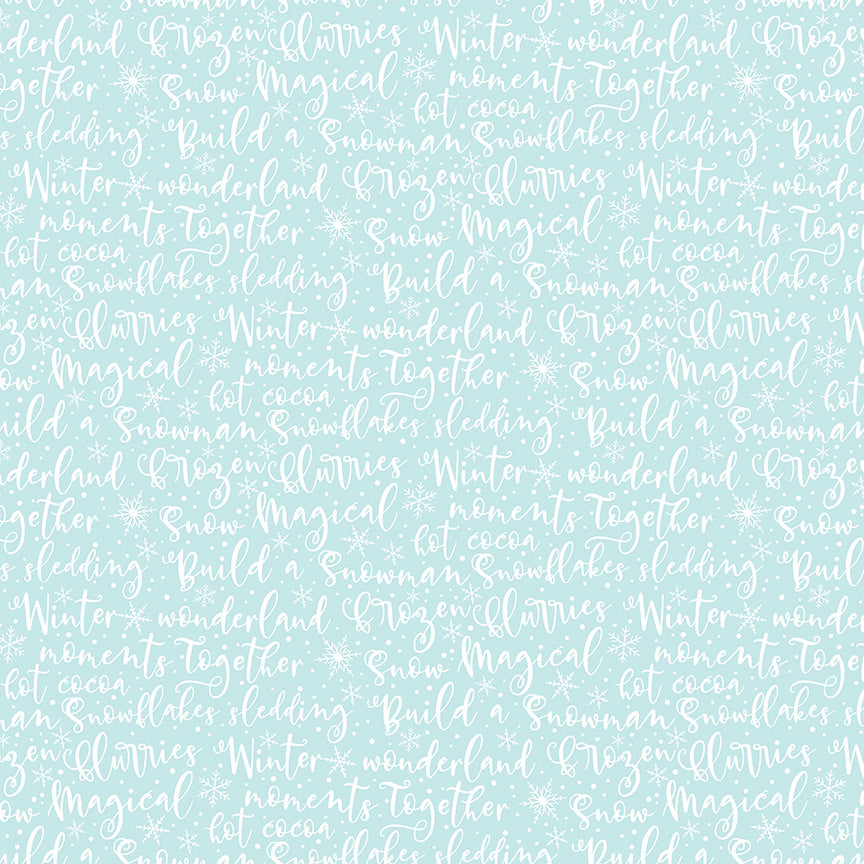 nderland Frozen Flurries Winter wonderland Frozen
ogether Snow Magical moments Together Snow
hot cocoa
s sledding Build a Snowman Snowflakes sledding Buil
Winter wonderland Frozen Flurries Winter wonde
moments Together Snow Magical moments Toge
hot cocoa hot cocoa
man Snowflakes sledding Build a Snowman Snowflakes
zen Flurries Winter wonderland Frozen Flurries W
Magical moments Together Snow Magical
hot cocoa
uild a Snowman Snowflakes sledding Build a Snowman
nderland Frozen Flurries Winter wonderland Frozen
ogether Snow Magical moments Together Snow
hot cocoa
s sledding Build a Snowman Snowflakes sledding Buil
Winter wonderland Frozen Flurries Winter wonde
moments Together Snow Magical moments Toge
hot cocoa hot cocoa
man Snowflakes sledding Build a Snowman Snowflakes
zen Flurries Winter wonderland Frozen Flurries W
Magical moments Together Snow Magical
hot cocoa
uild a Snowman Snowflakes sledding Build a Snowman